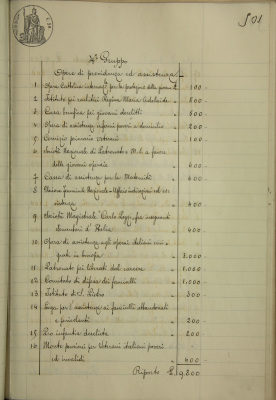 501
4° Gruppo
Opere di previdenza ed assistenza
1 Opera Cattolica internaz. per la protezione della giovane £. 100 -
2 Istituto pei rachitici Regina Maria Adelaide " 500 -
3 Casa benefica pei giovani derelitti " 500 -
4 Opera di assistenza infermi poveri a domicilio " 200 -
5 Comizio primario veterani " 100 -
6 Società Regionale di Patronato e M. S. a favore
delle giovani operaie " 600 -
7 Cassa di assistenza per la Maternità " 600 -
8 Unione Femminile Regionale - Ufficio indicazioni ed as-
sistenza " 300 -
9 Società Magistrale Carlo fra insegnanti
elementari d'Italia " 400 -
10 Opera di assistenza agli operai italiani emi-
grati in Europa " 3.000 -
11 Patronato pei liberati dal carcere " 1.000 -
12 Comitato di difesa dei fanciulli " 1.000 -
13 Istituto di S. Pietro " 300 -
14 Lega per l'assistenza ai fanciulli abbandonati
e " 200 -
15 Pro infantia derelicta " 200 -
16 pensioni per Veterani italiani poveri
ed invalidi " 400 -
Riporto £. 9.200 -